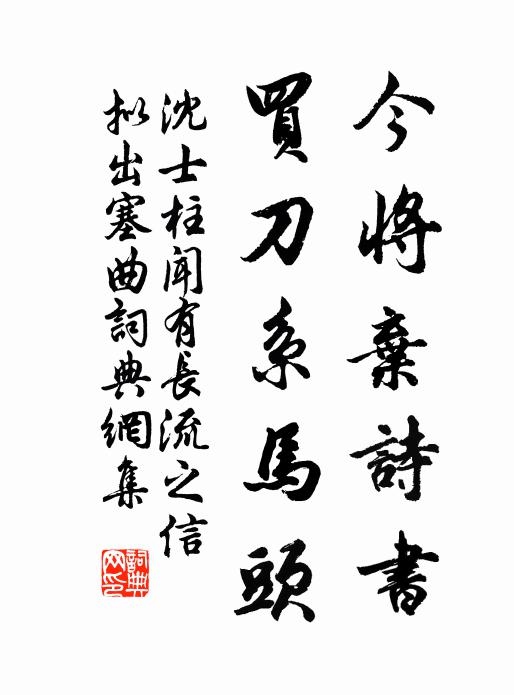 今將棄詩書
買刀系馬頭
沈士柱聞有長流之信
拟出塞曲詞典網集
詞典网印